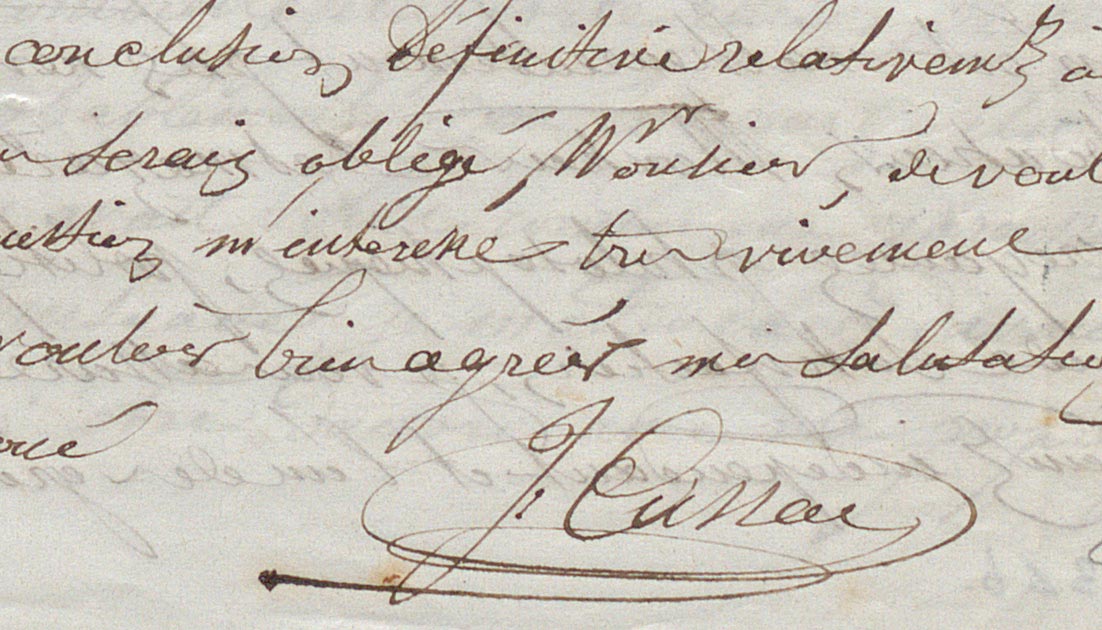 conclusion définitive relativemt à
serais obligé, Monsieur, de voul
uestion m'intéresse très vivement
vouloir bien agréer mes salutatio
oué
J. Cussac